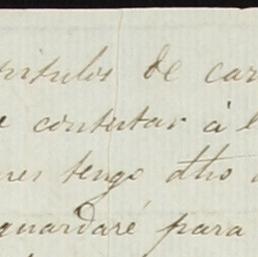 de car
contestar à l
tengo otro
guardaré para